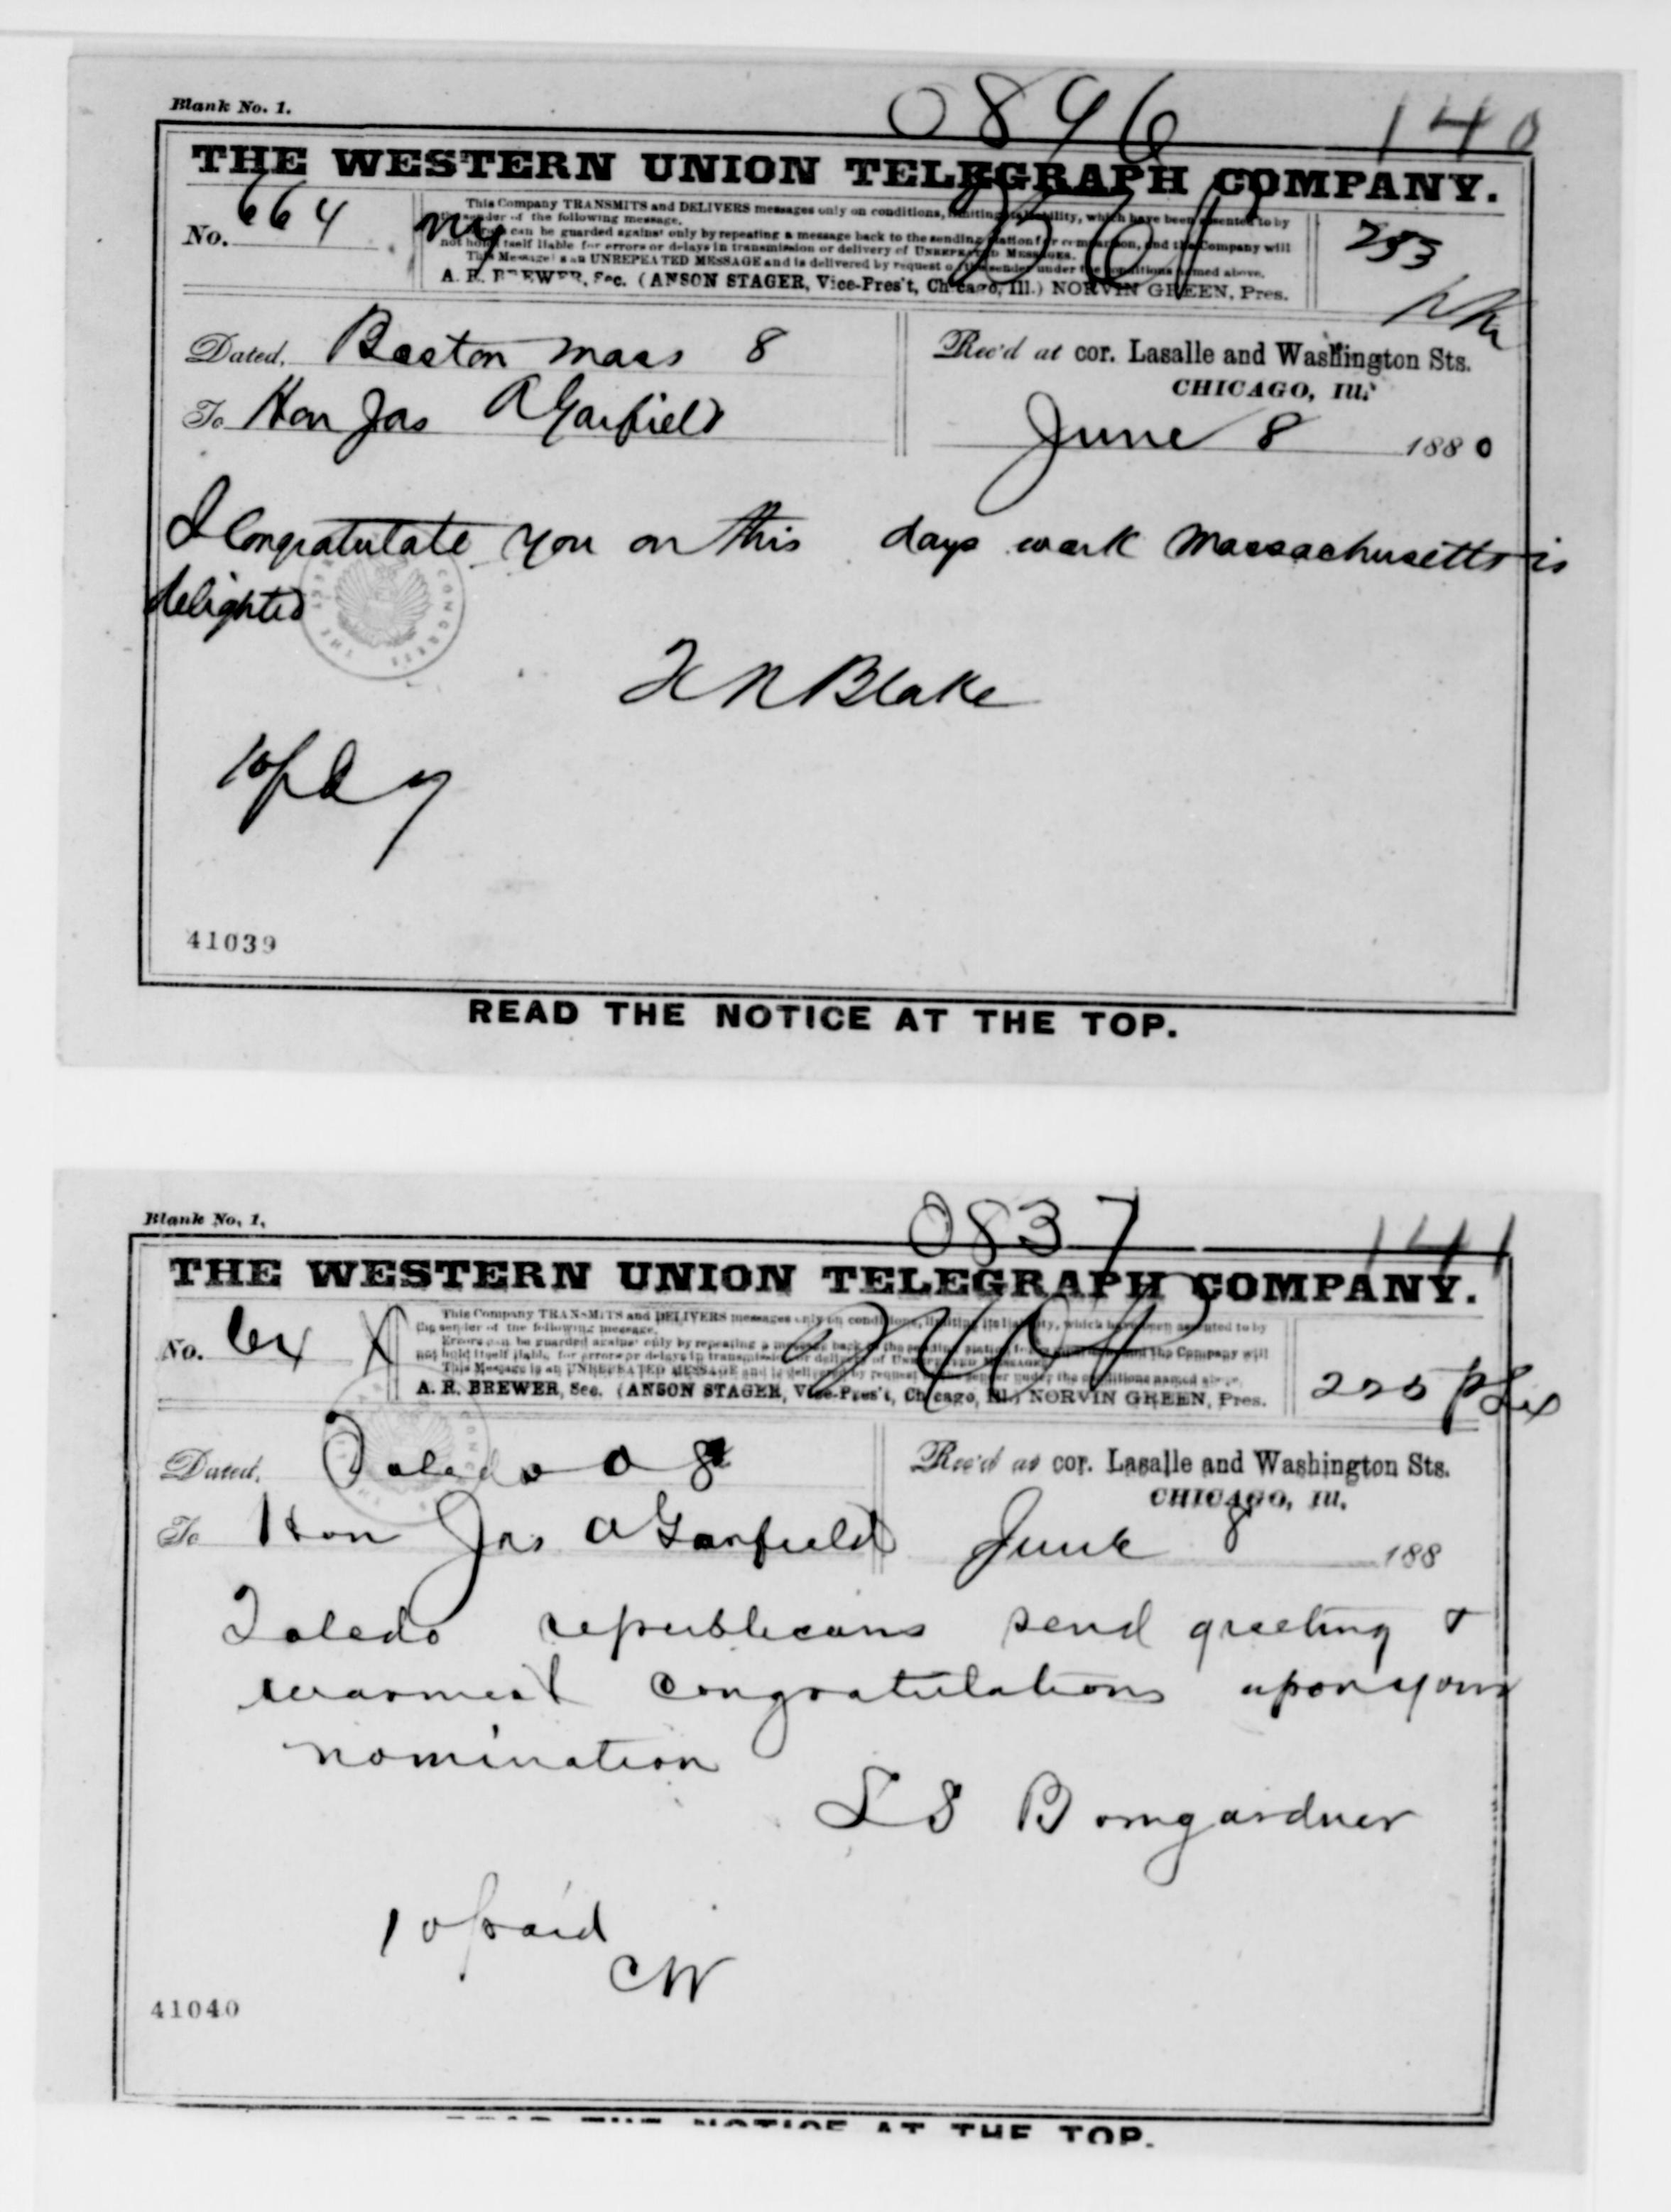 Blank No. 1.
0896
140
THE WESTERN UNION TELEGRAPH COMPANY.
No. 664
ny
This Company TRANSMITS and DELIVERS messages only on conditions, limiting its liability, which have been assented to by
the sender of the following message.
Errors can be guarded against only by repeating a message back to the sending station for comparison, and the Company will
not hold itself liable for errors or delays in transmission or delivery of UNREPEATED MESSAGES.
This Message is an UNREPEATED MESSAGE and is delivered by request of the sender under the conditions named above.
A. R. BREWER, Sec. (ANSON STAGER, Vice-Pres't, Chicago, Ill.) NORVIN GREEN, Pres.
253
Dated, Boston Mass 8
Rec'd at cor. Lasalle and Washington Sts.
CHICAGO, Ill.
To Hon Jas A Garfield
June 8 1880
I Congratulate you on this days work Massachusetts is
delighted
THE CONGRESS
H N Blake
41039
READ THE NOTICE AT THE TOP.
Blank No. 1.
0837
141
THE WESTERN UNION TELEGRAPH COMPANY.
No.
This Company TRANSMITS and DELIVERS messages only on conditions, limiting its liability, which have been assented to by
the sender of the following message.
Errors can be guarded against only by repeating a message back to the sending station for comparison, and the Company will
not hold itself liable for errors or delays in transmission or delivery of UNREPEATED MESSAGES.
This Message is an UNREPEATED MESSAGE and is delivered by request of the sender under the conditions named above.
A. R. BREWER, Sec. (ANSON STAGER, Vice-Pres't, Chicago, Ill.) NORVIN GREEN, Pres.
225
Dated, Toledo O 8
Rec'd at cor. Lasalle and Washington Sts.
CHICAGO, Ill.
To Hon Jas A Garfield
June 8 188
Toledo republicans send greeting &
warmest congratulations upon your
nomination
L S Bomgardner
10 paid
CW
41040
READ THE NOTICE AT THE TOP.